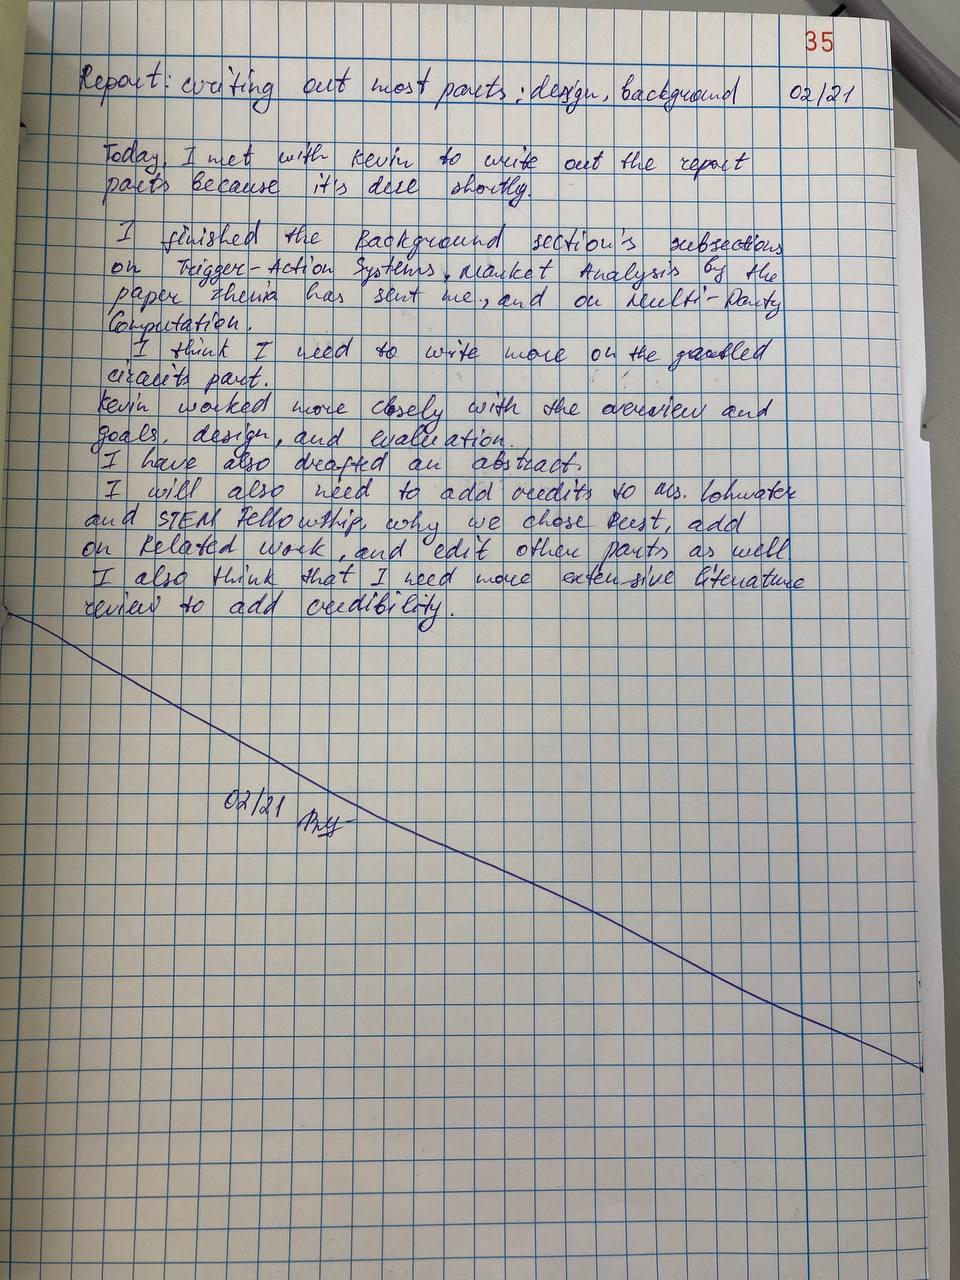 35
Report: writing out most parts: design, background 02/21
Today, I met with Kevin to write out the report
parts because it's due shortly.
I finished the Background section's subsections
on Trigger-Action Systems, Market Analysis by the
paper Zhenia has sent me, and on Multi-Party
Computation.
I think I need to write more on the garbled
circuits part.
Kevin worked more closely with the overview and
goals, design, and evaluation.
I have also drafted an abstract.
I will also need to add credits to Ms. Lohwater
and STEM Fellowship, why we chose Rust, add
on Related work, and edit other parts as well
I also think that I need more extensive literature
review to add credibility.
02/21